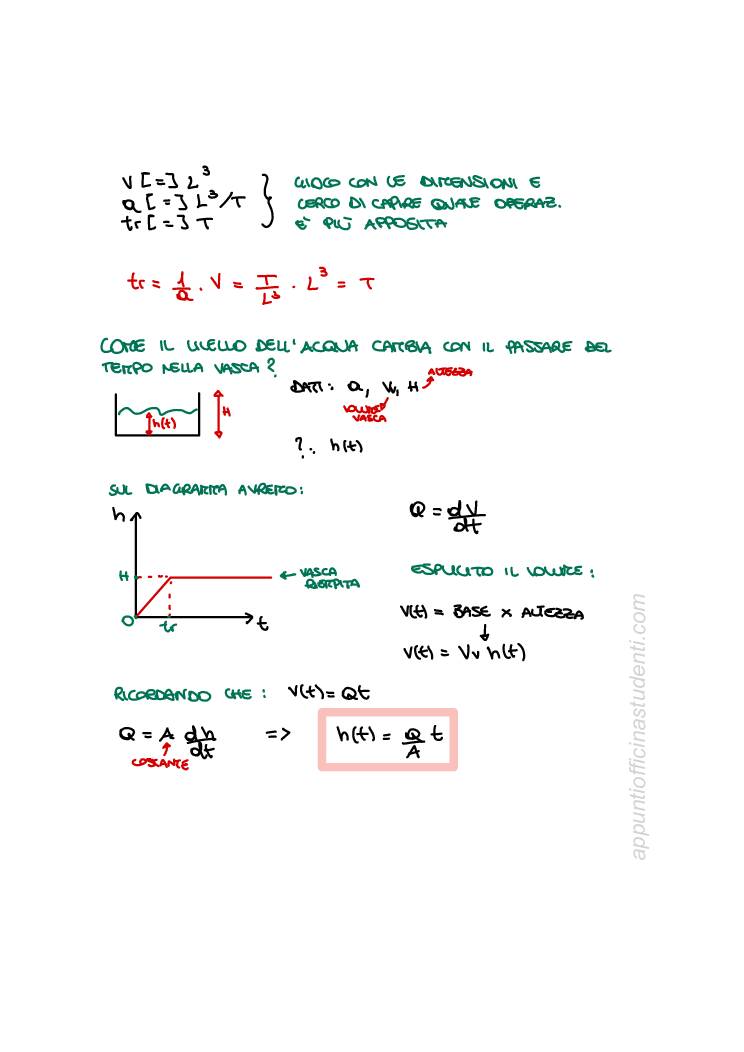 V [=] L³
Q [=] L³/T
tr [=] T
GIOCO CON LE DIMENSIONI E
CERCO DI CAPIRE QUALE OPERAZ.
E' PIÙ APPOSITA
tr = 1/Q · V = T/L³ · L³ = T
COME IL LIVELLO DELL'ACQUA CAMBIA CON IL PASSARE DEL
TEMPO NELLA VASCA?
h(t)
H
DATI: Q, Vv, H
ALTEZZA
VOLUME
VASCA
?: h(t)
SUL DIAGRAMMA AVREMO:
h
H
O
tr
t
← VASCA
RIEMPITA
Q = dV/dt
ESPLICITO IL VOLUME:
V(t) = BASE × ALTEZZA
↓
V(t) = Vv h(t)
RICORDANDO CHE: V(t) = Qt
Q = A dh/dt => h(t) = Q/A t
COSTANTE
appuntiofficinastudenti.com